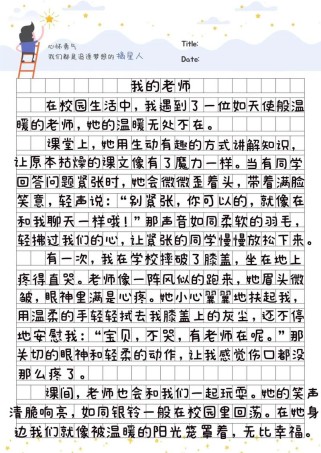 心怀勇气
我们都是追逐梦想的 摘星人
Title:
Date:
我的老师
在校园生活中，我遇到了一位如天使般温
暖的老师，她的温暖无处不在。
课堂上，她用生动有趣的方式讲解知识，
让原本枯燥的课文像有了魔力一样。当有同学
回答问题紧张时，她会微微歪着头，带着满脸
笑意，轻声说：“别紧张，你可以的，就像在
和我聊天一样哦！”那声音如同柔软的羽毛，
轻拂过我们的心，让紧张的同学慢慢放松下来。
有一次，我在学校摔破了膝盖，坐在地上
疼得直哭。老师像一阵风似的跑来，她眉头微
皱，眼神里满是心疼。她小心翼翼地扶起我，
用温柔的手轻轻拭去我膝盖上的灰尘，还不停
地安慰我：“宝贝，不哭，有老师在呢。”那
关切的眼神和轻柔的动作，让我感觉伤口都没
那么疼了。
课间，老师也会和我们一起玩耍。她的笑声
清脆响亮，如同银铃一般在校园里回荡。在她身
边我们就像被温暖的阳光笼罩着，无比幸福。